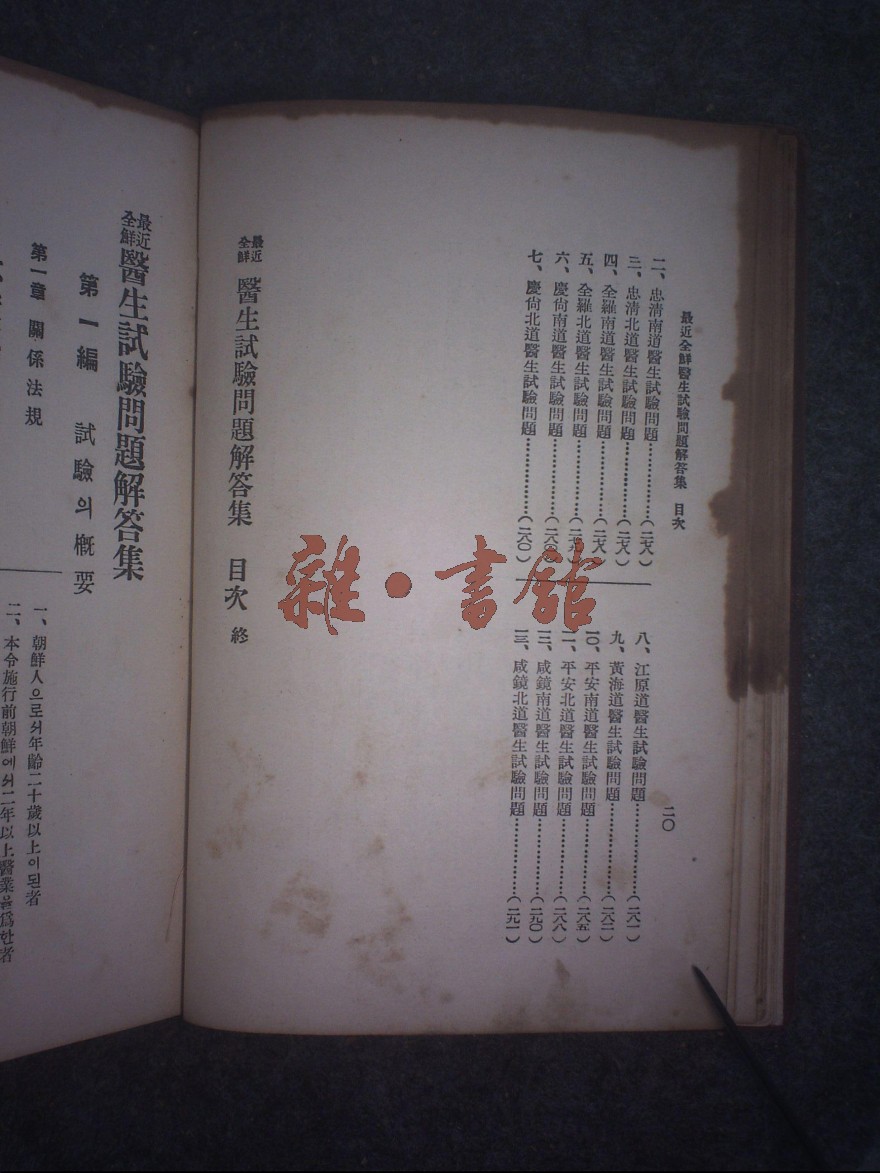 最近全鮮醫生試驗問題解答集 目次
二、忠清南道醫生試驗問題…………(二七八)
三、忠清北道醫生試驗問題…………(二七八)
四、全羅南道醫生試驗問題…………(二七八)
五、全羅北道醫生試驗問題…………
六、慶尙南道醫生試驗問題…………(二八〇)
七、慶尙北道醫生試驗問題…………(二八〇)
八、江原道醫生試驗問題…………(二八一)
九、黃海道醫生試驗問題…………(二八二)
一〇、平安南道醫生試驗問題…………(二八五)
一一、平安北道醫生試驗問題…………(二八八)
一二、咸鏡南道醫生試驗問題…………(二九〇)
一三、咸鏡北道醫生試驗問題…………(二九一)
二〇
最近全鮮 醫生試驗問題解答集 目次 終
雜·書館
最近全鮮 醫生試驗問題解答集
第一編 試驗의 槪要
第一章 關係法規
一、朝鮮人으로서年齡二十歲以上이된者
二、本令施行前朝鮮에서二年以上醫業을爲한者